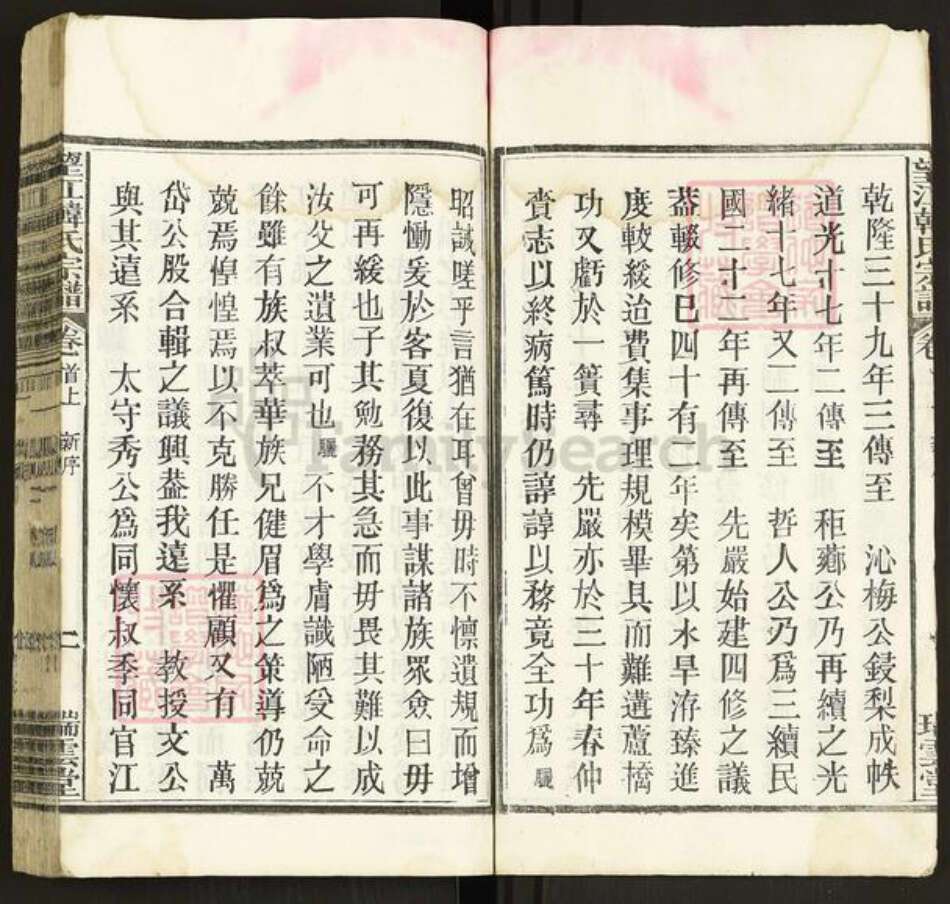 乾隆三十九年三傳至　沁梅公鋟梨成帙
道光十七年二傳至　秬薌公乃再續之光
緒十七年又二傳至　哲人公乃爲三續民
國二十一年再傳至　先嚴始建四修之議
葢輟修已四十有一年矣第以水旱洊臻進
度較緩迨費集事理規模畢具而難遘蘆橋
功又虧於一簣尋　先嚴亦於三十年春仲
賫志以終病篤時仍諄諄以務竟全功爲驪
昭誡嗟乎言猶在耳曾毋時不懍遺規而增
隱慟爰於客夏復以此事謀諸族眾僉曰毋
可再緩也子其勉務其急而毋畏其難以成
汝父之遺業可也驪不才學膚識陋受命之
餘雖有族叔萃華族兄健眉爲之策導仍兢
兢焉惶惶焉以不克勝任是懼顧又有　萬
岱公股合輯之議興葢我遠系　教授文公
與其遠系　太守秀公爲同懷叔季同官江
望江韓氏宗譜
卷首上　新序
二
瑞雲堂
FamilySearch